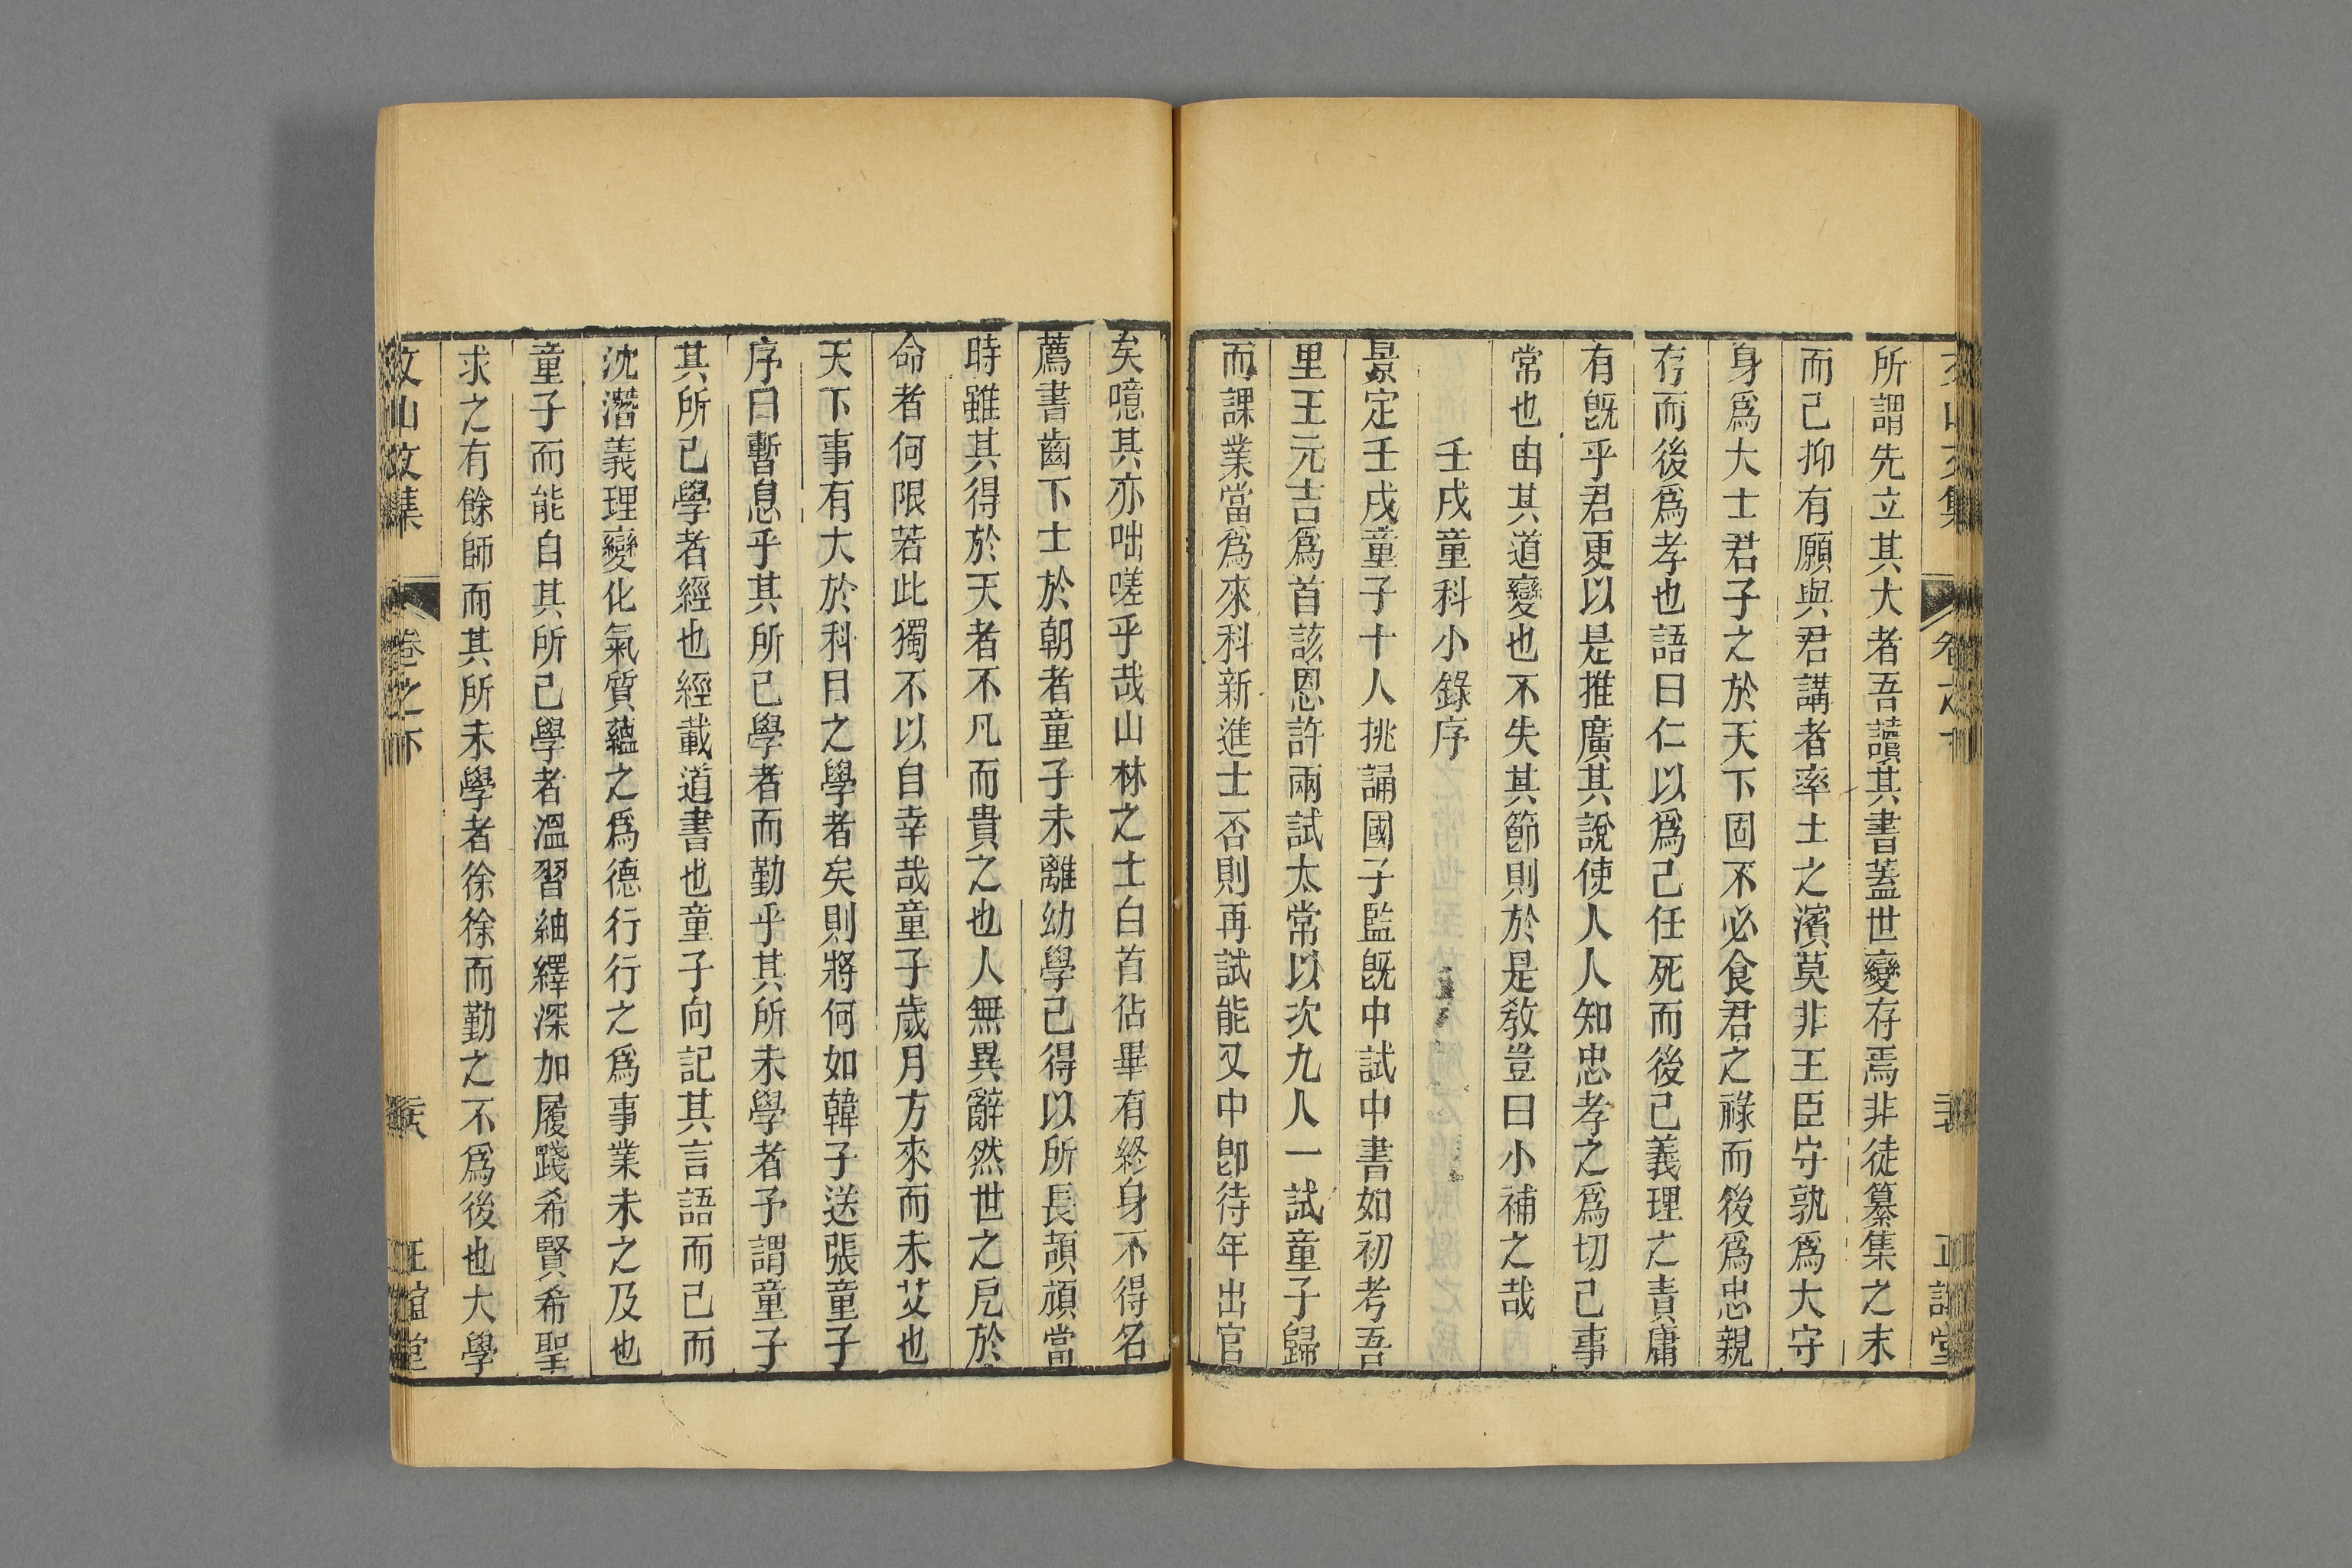 所謂先立其大者吾讀其書蓋世變存焉非徒纂集之末
而已抑有願與君講者率土之濱莫非王臣守孰爲大守
身爲大士君子之於天下固不必食君之祿而後爲忠親
存而後爲孝也語曰仁以爲己任死而後已義理之責庸
有旣乎君更以是推廣其說使人人知忠孝之爲切己事
常也由其道變也不失其節則於是敎豈曰小補之哉
壬戌童科小錄序
景定壬戌童子十人挑誦國子監旣中試中書如初考吾
里王元吉爲首該恩許兩試太常以次九人一試童子歸
而課業當爲來科新進士否則再試能又中卽待年出官
矣噫其亦咄嗟乎哉山林之士白首佔畢有終身不得名
薦書齒下士於朝者童子未離幼學已得以所長頡頏當
時雖其得於天者不凡而貴之也人無異辭然世之戹於
命者何限若此獨不以自幸哉童子歲月方來而未艾也
天下事有大於科目之學者矣則將何如韓子送張童子
序曰暫息乎其所已學者而勤乎其所未學者予謂童子
其所已學者經也經載道書也童子向記其言語而已而
沈潛義理變化氣質蘊之爲德行行之爲事業未之及也
童子而能自其所已學者溫習紬繹深加履踐希賢希聖
求之有餘師而其所未學者徐徐而勤之不爲後也大學
文山文集 卷之下 正誼堂